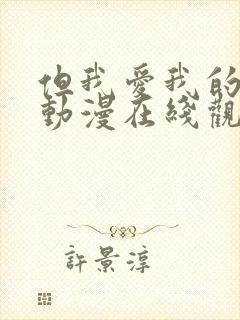 但我愛我的
動漫在綫觀
許景淳